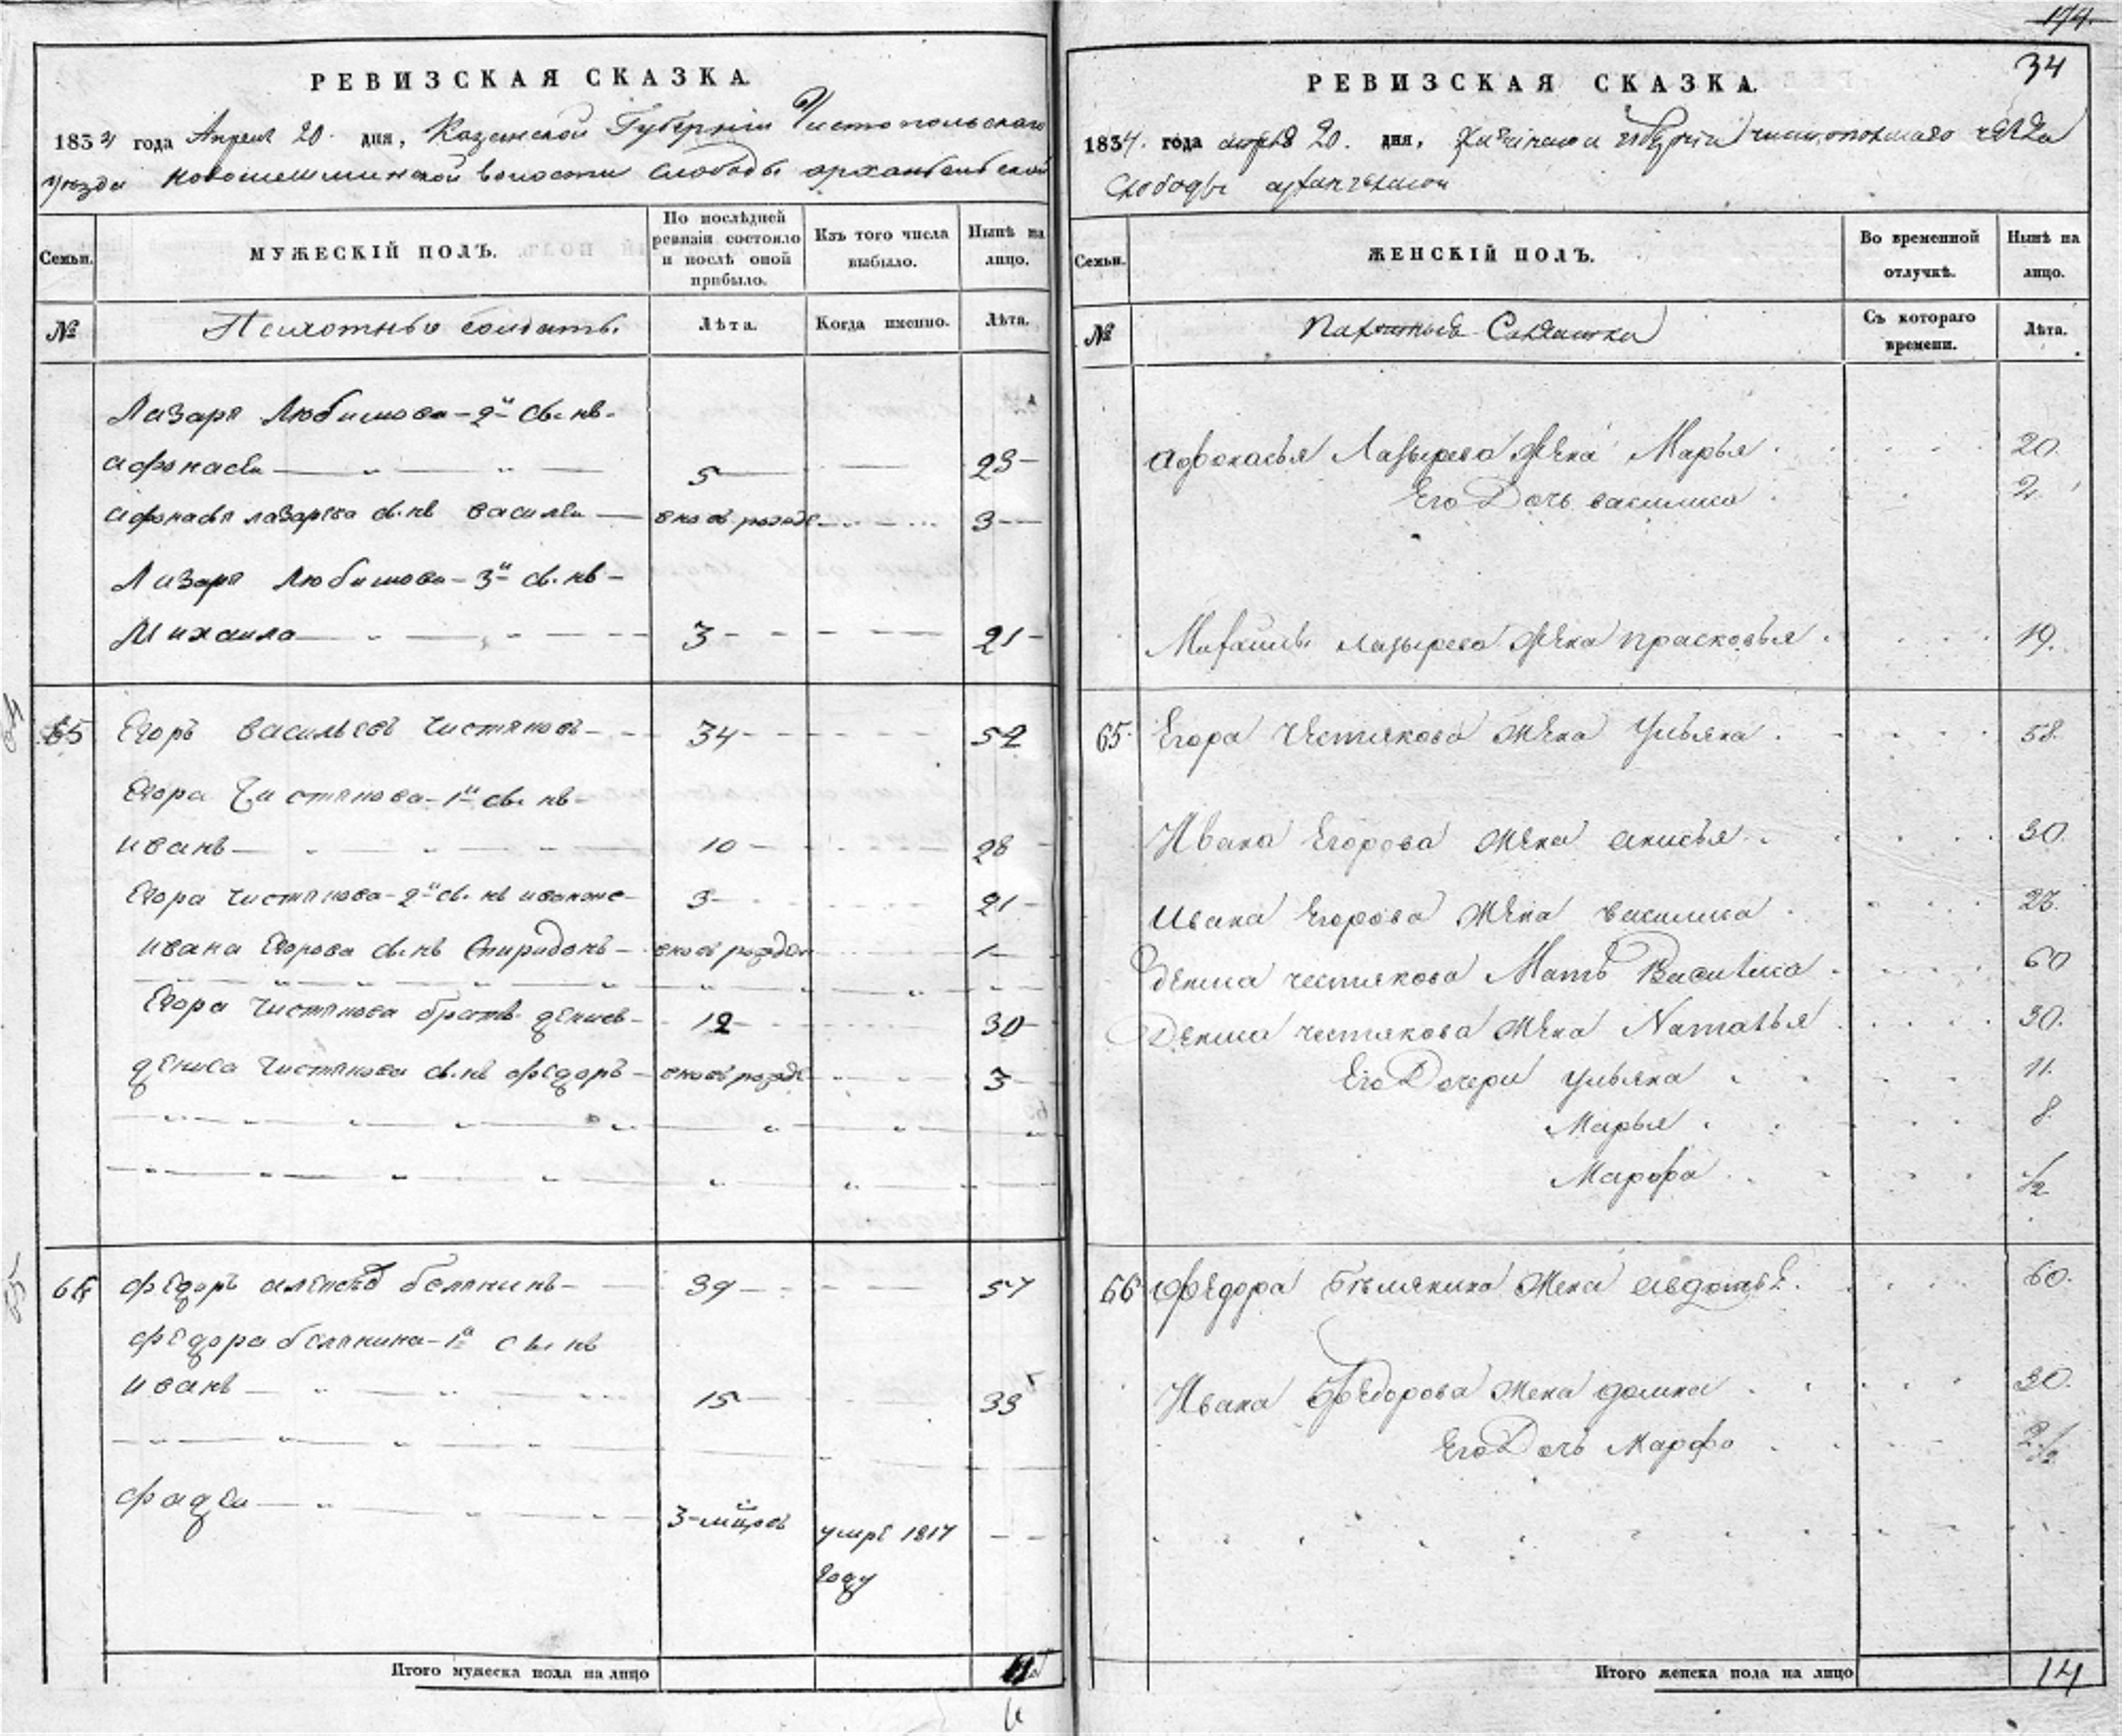 РЕВИЗСКАЯ СКАЗКА.
1834 года Апреля 20 дня, Казанской Губернiи Чистопольскаго
уезда Новошешминской волости слободы архангельской
Семьи.
МУЖЕСКIЙ ПОЛЪ.
По послѣдней ревизiи состояло и послѣ оной прибыло.
Изъ того числа выбыло.
Нынѣ на лицо.
№
Пехотные солдаты.
Лѣта.
Когда именно.
Лѣта.
Лазаря Любимова - 2й сынъ -
афонасеи 5 23
афонасья лазарева сынъ василеи вновь рожде 3
Лазаря Любимова - 3й сынъ -
Михаила 3 21
65 Егоръ васильевъ чистяковъ 34 52
Егора Чистякова - 1й сынъ -
иванъ 10 28
Егора чистякова - 2й сынъ иванже 3 21
ивана Егорова сынъ Спиридонъ вновь рожден 1
Егора чистякова братъ денисъ 12 30
дениса чистякова сынъ федоръ вновь рожде 3
66 федоръ алексеевъ белянинъ 39 57
федора белянина - 1й сынъ
иванъ 15 33
фадеи 3 умре 1817
году
Итого мужеска пола на лицо 11
174
34
РЕВИЗСКАЯ СКАЗКА.
1834. года апреля 20. дня, Казанской губернiи чистопольскаго уезда
Слободы архангельской
Семьи.
ЖЕНСКIЙ ПОЛЪ.
Во временной отлучкѣ.
Нынѣ на лицо.
№
Пахатныя Солдатки
Съ котораго времени.
Лѣта.
афонасья Лазырева Жена Марья 20.
Его Дочь василиса 2
Михаилы лазырева Жена прасковья 19.
65. Егора чистякова Жена Ульяна 58.
Ивана Егорова Жена анисья 30.
Ивана Егорова Жена василиса
дениса честякова Мать Василиса 60
Дениса честякова Жена Наталья 30.
Его Дочери ульяна 11.
Марья 8.
Марфа 1/2
66 федора белянина Жена авдотья 60.
Ивана Федорова Жена домна 30.
Его Дочь Марфа 2 1/2
Итого женска пола на лицо 14